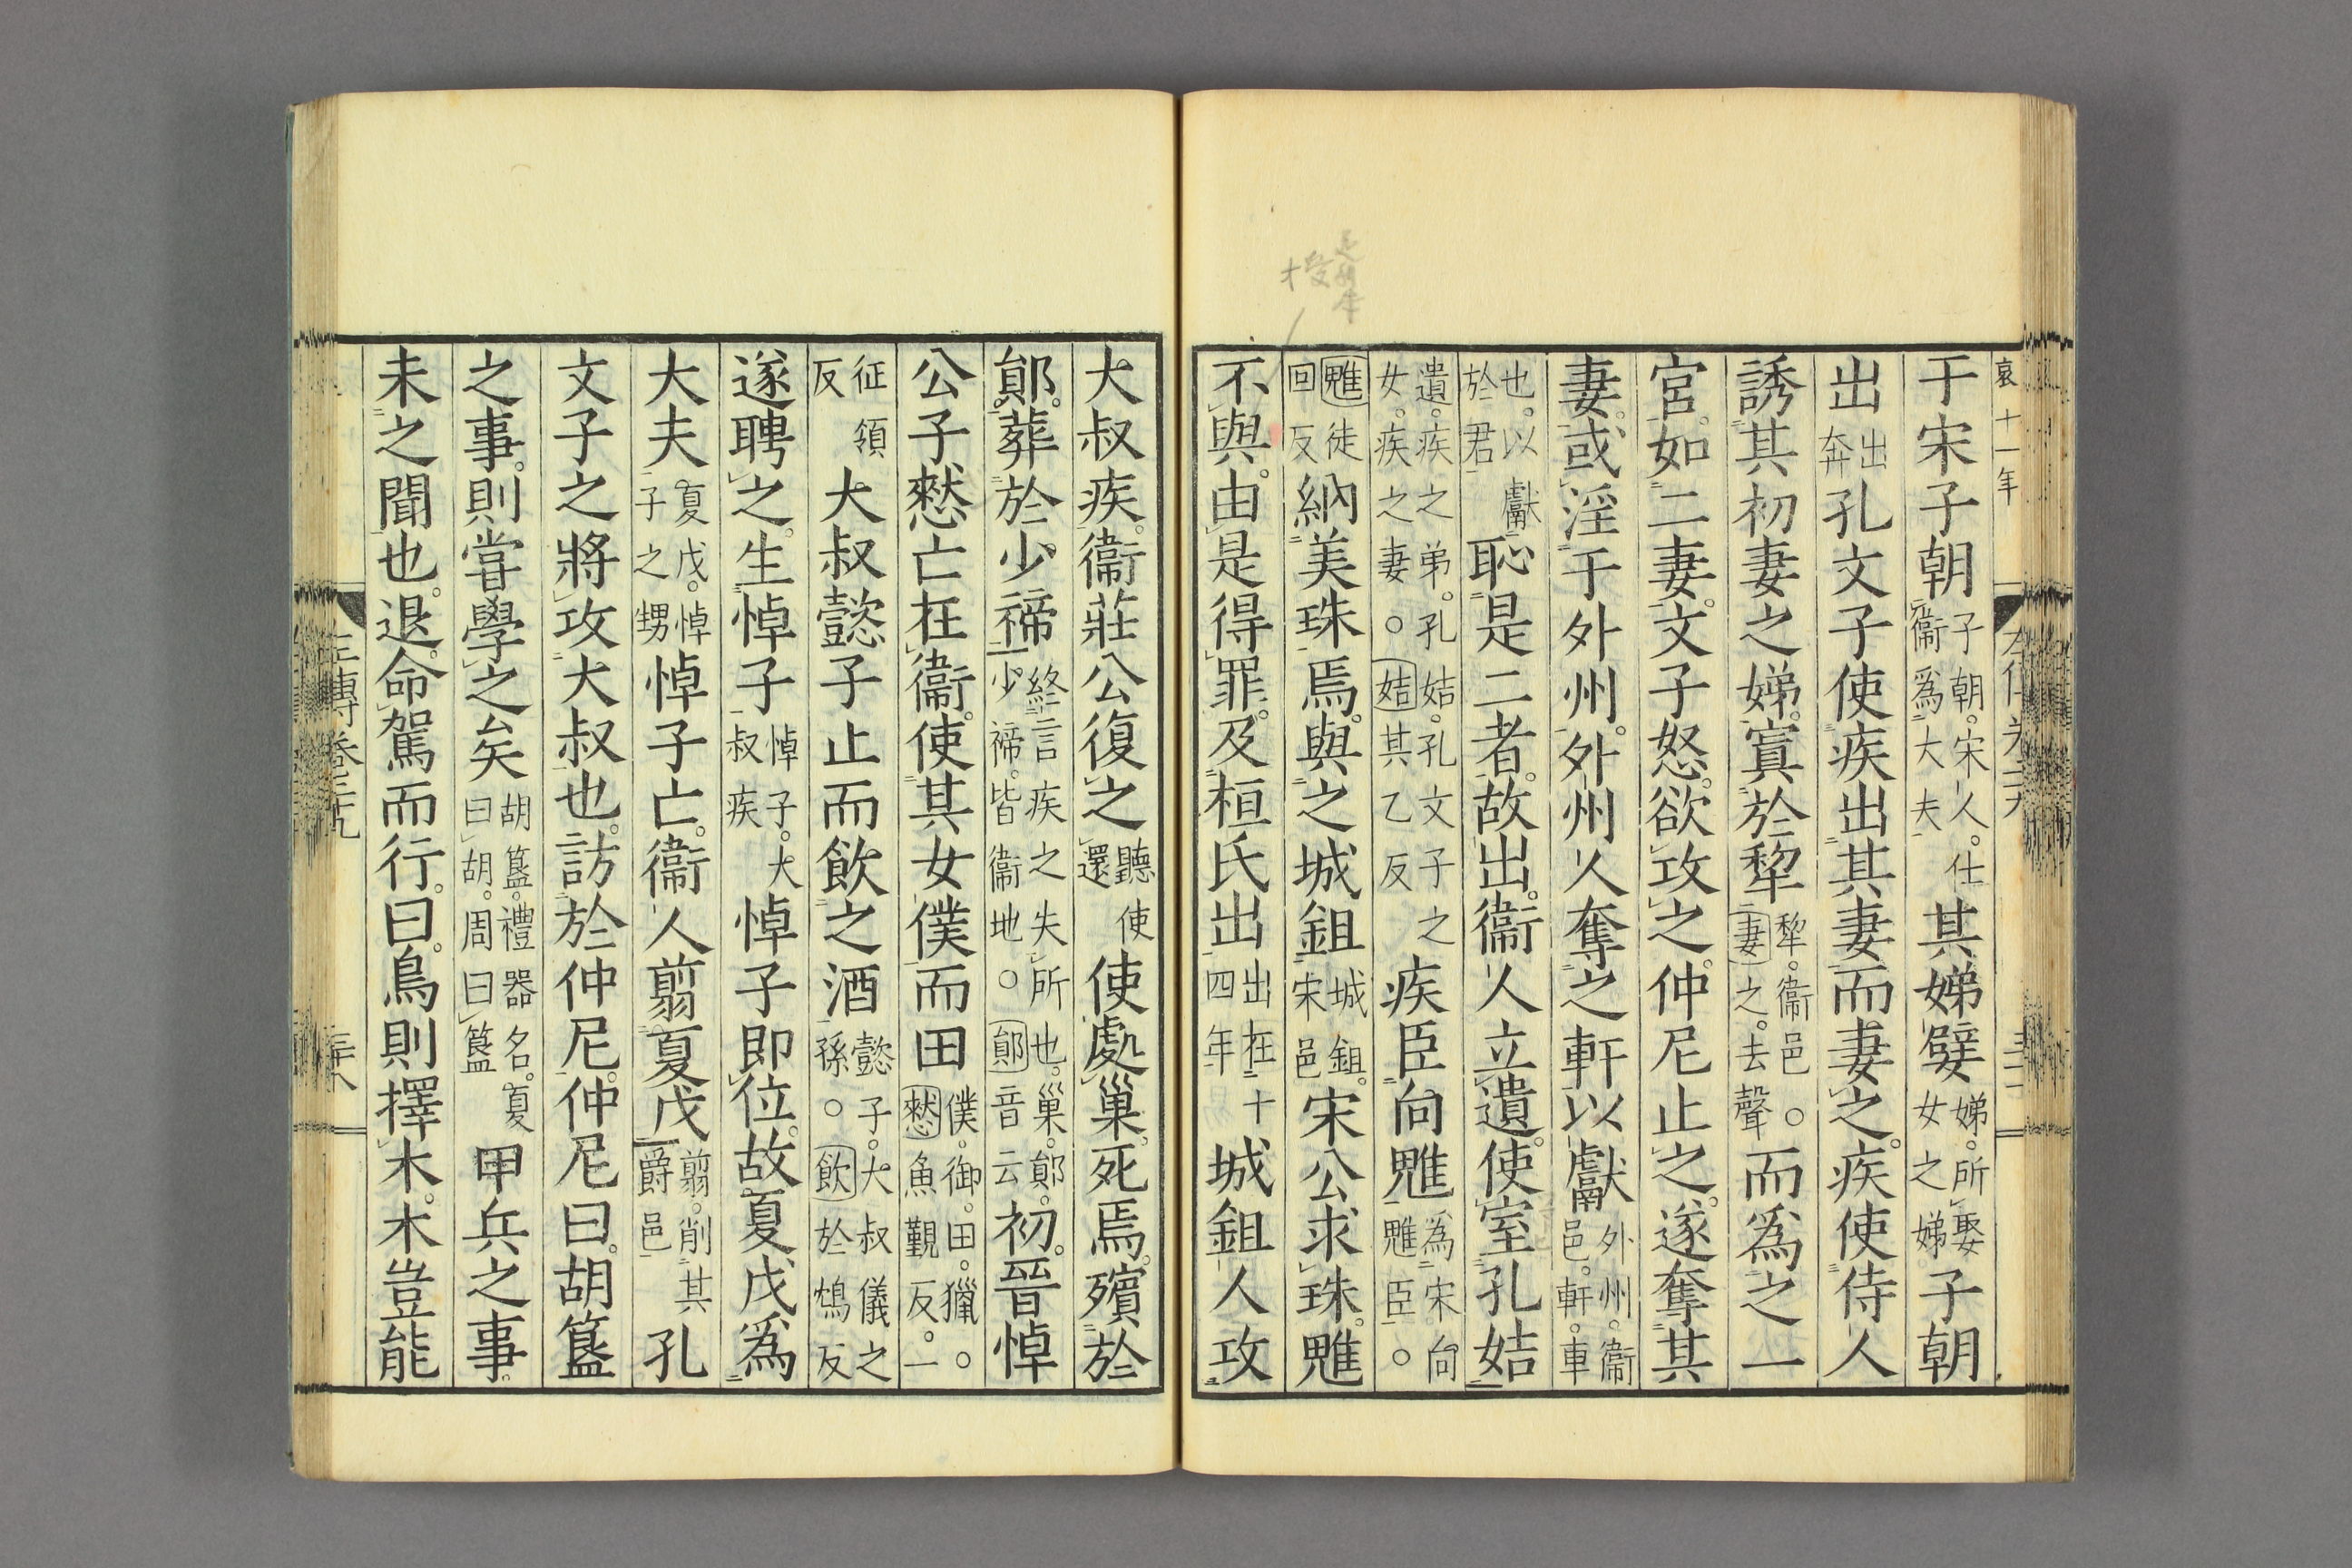 哀十一年
于宋子朝子朝宋人仕衞爲大夫其娣嬖娣所娶女之娣子朝
出出奔孔文子使疾出其妻而妻之疾使侍人
誘其初妻之娣寘於犂犂衞邑○妻之去聲而爲之一
宮如二妻文子怒欲攻之仲尼止之遂奪其
妻或淫于外州外州人奪之軒以獻外州衞邑軒車
也以獻於君恥是二者故出衞人立遺使室孔姞
遺疾之弟孔姞孔文子之女疾之妻○姞其乙反疾臣向魋爲宋向魋臣○
魋徒回反納美珠焉與之城鉏城鉏宋邑宋公求珠魋
不與由是得罪及桓氏出出在十四年城鉏人攻
大叔疾衞莊公復之聽使還使處巢死焉殯於
鄖葬於少禘終言疾之失所也巢鄖少禘皆衞地○鄖音云初晉悼
公子憖亡在衞使其女僕而田僕御田獵○憖魚覲反一
征領反大叔懿子止而飲之酒懿子大叔儀之孫○飲於鴆反
遂聘之生悼子悼子大叔疾悼子即位故夏戊爲
大夫夏戊悼子之甥悼子亡衞人翦夏戊翦削其爵邑孔
文子之將攻大叔也訪於仲尼仲尼曰胡簋
之事則嘗學之矣胡簋禮器名夏曰胡周曰簋甲兵之事
未之聞也退命駕而行曰鳥則擇木木豈能